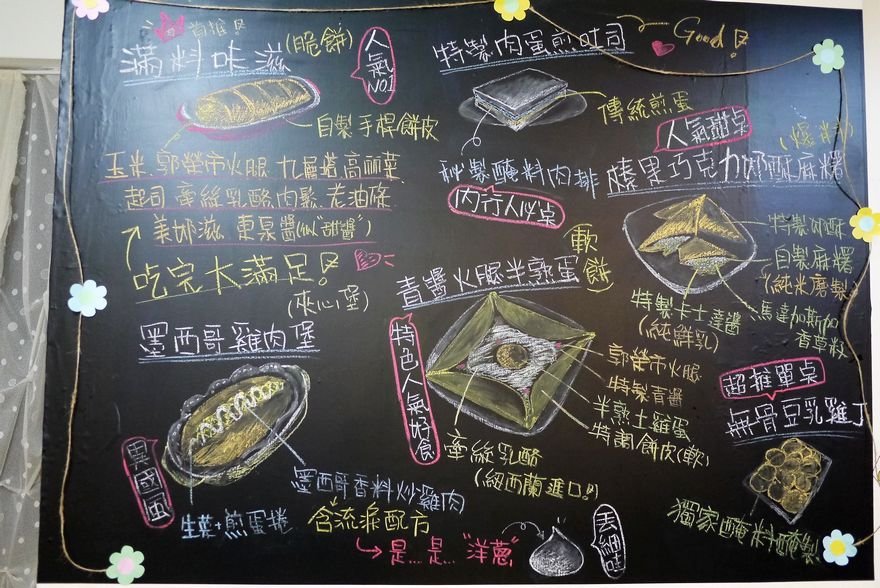 首推!!
滿料咔滋(脆餅)
人氣NO1
自製手桿餅皮
玉米.郭榮市火腿.九層塔.高麗菜
起司.牽絲乳酪.肉鬆.老油條
美奶滋.東泉醬(似"甜醬")
吃完大滿足!
特製肉蛋煎吐司
Good!!
傳統煎蛋
秘製醃料肉排
內行人必点
人氣甜点
榛果巧克力奶酥麻糬
特製奶酥
自製麻糬
(純米磨製)
馬達加斯加
香草籽
特製卡士達醬
(純鮮乳)
青醬火腿半熟蛋
軟餅
特色人氣好食
郭榮市火腿
特製青醬
半熟土雞蛋
特調餅皮(軟)
牽絲乳酪
(紐西蘭進口!!)
(夾心堡)
墨西哥雞肉堡
異國風
生菜+煎蛋捲
墨西哥香料炒雞肉
含流淚配方
是...是..."洋蔥"
超推單点
無骨豆乳雞丁
獨家醃料醃製